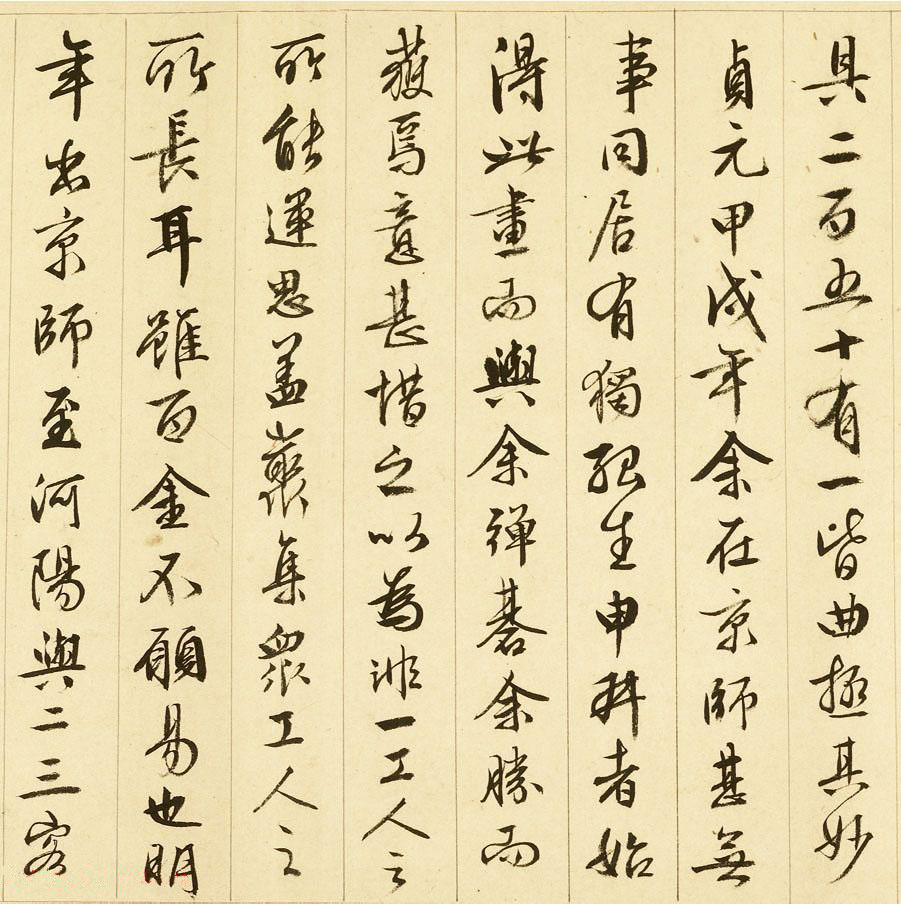 具二百五十有一皆曲極其妙
貞元甲戌年余在京師甚無
事同居有獨孤生申料者始
得此畫而與余彈碁余勝而
獲焉意甚惜之以為非一工人之
所能運思蓋叢集眾工人之
所長耳雖百金不願易也明
年出京師至河陽與二三客